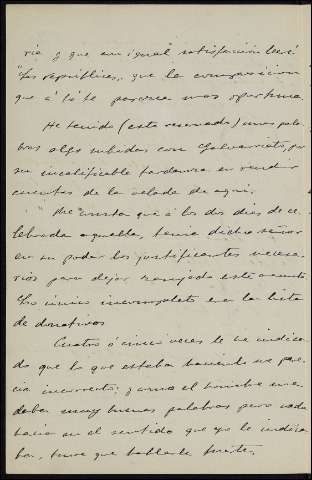 ria y que con igual satisfacción leeré
"Las repúblicas, que la composicion
que á tó te parezca mas oportuna.
He tenido (esto reservado) unas pala-
bras algo subidas con Galvarriato, por
su incalificable tardanza en rendir
cuentas de la velada de aquí.
Me consta que á los dos dias de ce-
lebrada aquella, tenia dicho señor
en su poder los justificantes necesa-
rios para dejar zanjado este asunto
Lo único incompleto era la lista
de donativos
Cuatro ó cinco veces le he indica-
do que lo que estaba haciendo me pare-
cia incorrecto; y como el hombre me
daba muy buenas palabras pero nada
hacia en el sentido que yo le indica-
ba, tuve que hablarle fuerte.